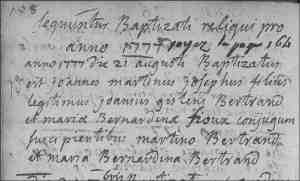 158
Sequuntur Baptizati reliqui pro
anno 1777 voyez pag 164
anno 1777 die 21 augusti Baptizatus
est Joannes martinus Josephus filius
legitimus Joannis Bertrand
et maria Bernardina conjugum
suscipientibus martino Bertrand
et maria Bernardina Bertrand